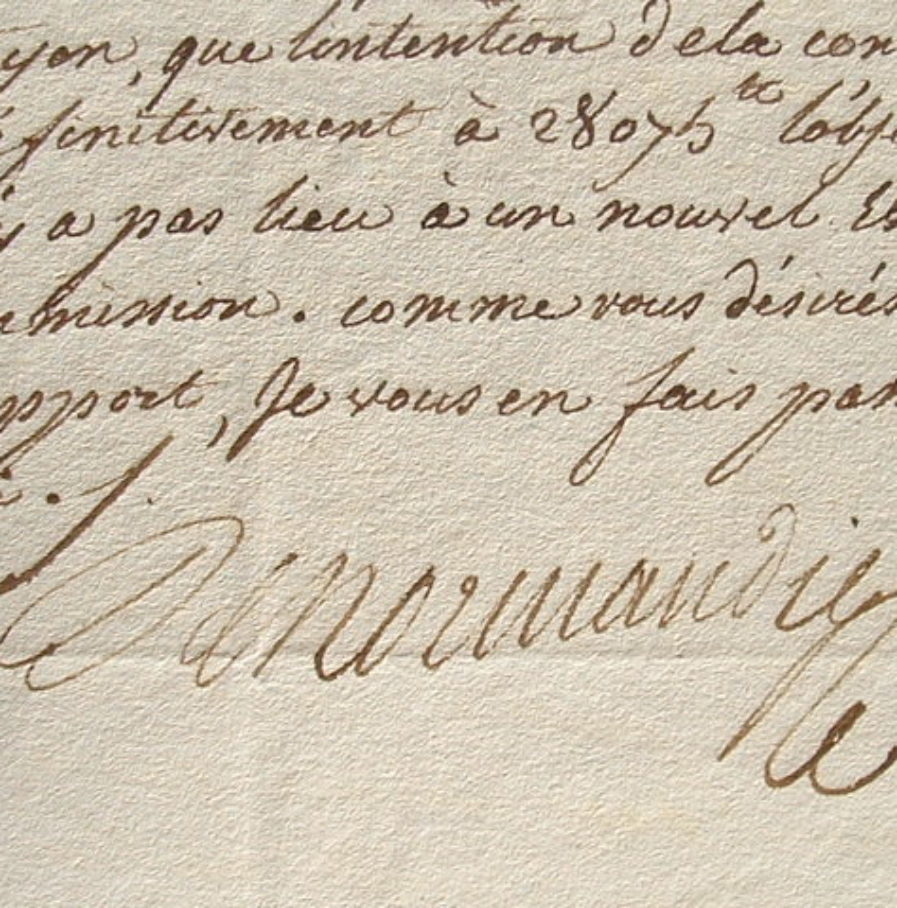 yen, que lintention dela con
finitivement à 28075tt lobje
y a pas lieu à un nouvel Et
mission. comme vous désirés
pport, Je vous en fais par
DeNormandie